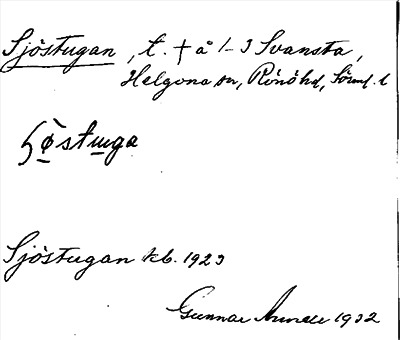 Sjöstugan, t. † å 1-3 Svansta,
Helgona sn, Rönö hd, Söml. l
ɧö̀stuga
Sjöstugan kb. 1923
Gunnar 1932